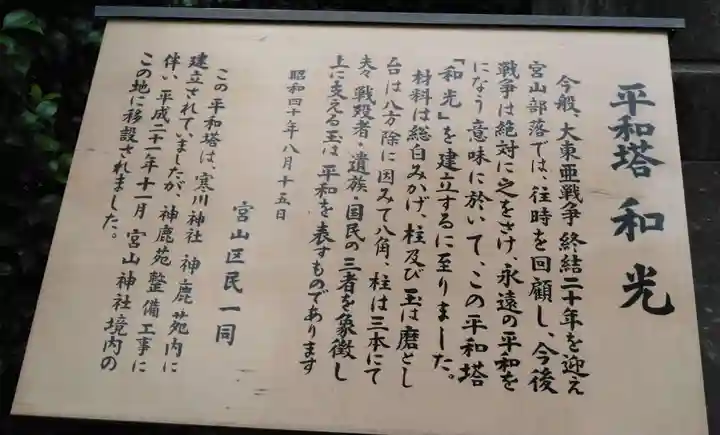 平和塔 和光
今般、大東亜戦争終結二十年を迎え
宮山部落では、往時を回顧し、今後
戦争は絶対に之をさけ、永遠の平和を
になう意味に於いて、この平和塔
「和光」を建立するに至りました。
材料は総白みかげ、柱及び玉は磨とし
台は八方除に因みて八角、柱は三本にて
夫々戦殁者・遺族・国民の三者を象徴し
上に支える玉は平和を表すものであります
昭和四十年八月十五日
宮山区民一同
この平和塔は、寒川神社神鹿苑内に
建立されていましたが、神鹿苑整備工事に
伴い、平成二十一年十一月宮山神社境内の
この地に移設されました。